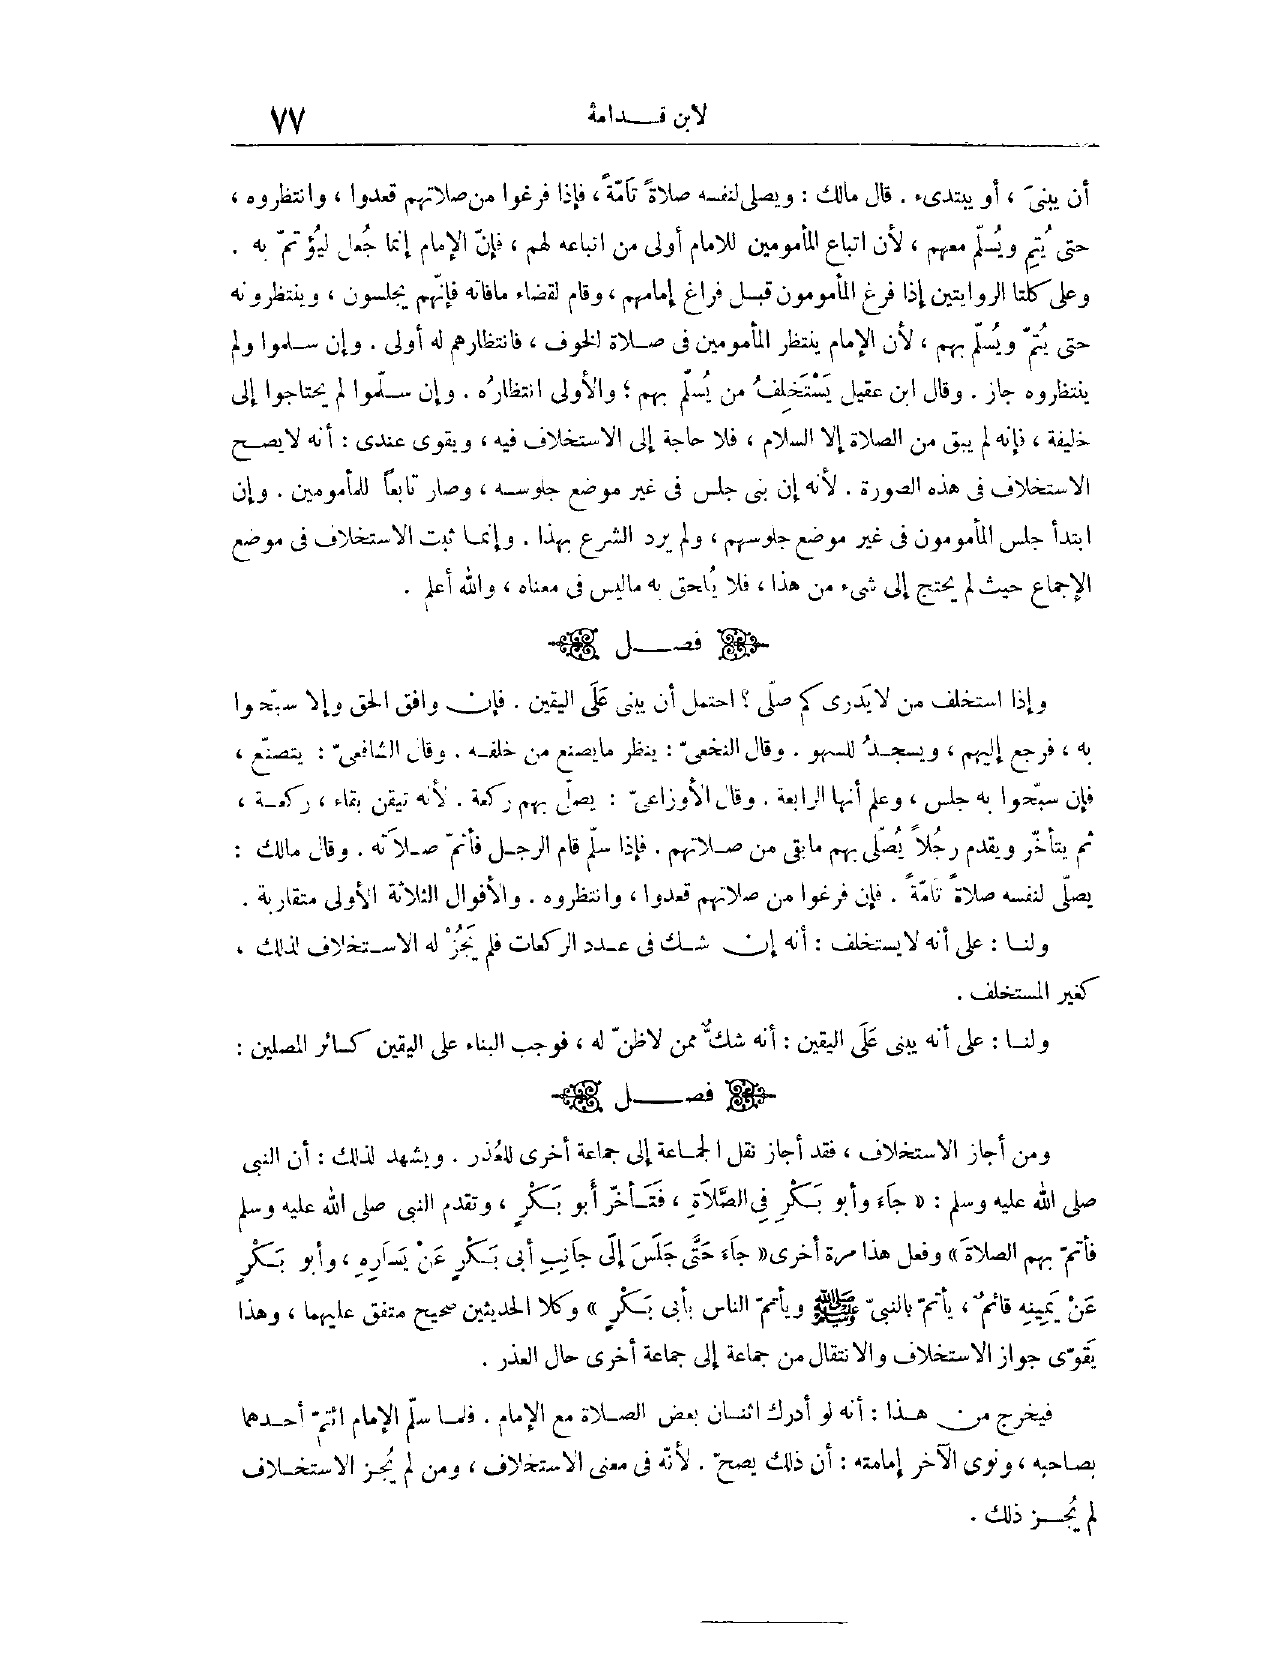 لابن قدامة ٧٧
أن يبنىَ ، أو يبتدىء . قال مالك : ويصلى لنفسه صلاةً تَامّةً ، فإذا فرغوا من صلاتهم قعدوا ، وانتظروه ،
حتى يُتِم ويُسلّم معهم ، لأن اتباع المأمومين للامام أولى من اتباعه لهم ، فإنّ الإمام إنما جُعل ليُؤتمّ به .
وعلى كلتا الروايتين إذا فرغ المأمومون قبل فراغ إمامهم ، وقام لقضاء مافاته فإنّهم يجلسون ، وينتظرونه
حتى يُتمّ ويُسلّم بهم ، لأن الإمام ينتظر المأمومين فى صلاة الخوف ، فانتظارهم له أولى . وإن سلموا ولم
ينتظروه جاز . وقال ابن عقيل يَسْتَخلِفُ من يُسلّم بهم ؛ والأولى انتظارُه . وإن سلّموا لم يحتاجوا إلى
خليفة ، فإنه لم يبق من الصلاة إلا السلام ، فلا حاجة إلى الاستخلاف فيه ، ويقوى عندى : أنه لايصح
الاستخلاف فى هذه الصورة . لأنه إن بنى جلس فى غير موضع جلوسه ، وصار تابعاً للمأمومين . وإن
ابتدأ جلس المأمومون فى غير موضع جلوسهم ، ولم يرد الشرع بهذا . وإنما ثبت الاستخلاف فى موضع
الإجماع حيث لم يحتج إلى شىء من هذا ، فلا يُلحق به ماليس فى معناه ، والله أعلم .
فصل
وإذا استخلف من لايَدرى كم صلّى ؟ احتمل أن يبنى عَلَى اليقين . فإن وافق الحق وإلا سبّحوا
به ، فرجع إليهم ، ويسجدُ للسهو . وقال النخعىّ : ينظر مايصنع من خلفه . وقال الشافعىّ : يتصنّع ،
فإن سبّحوا به جلس ، وعلم أنها الرابعة . وقال الأوزاعىّ : يصلّى بهم ركعة . لأنه تيقن بقاء ، ركعة ،
ثم يتأخّر ويقدم رجُلاً يُصّلى بهم مابقى من صلاتهم . فإذا سلّم قام الرجل فأتمّ صلاَته . وقال مالك :
يصلّى لنفسه صلاةً تَامّةً . فإن فرغوا من صلاتهم قعدوا ، وانتظروه . والأقوال الثلاثة الأولى متقاربة .
ولنا : على أنه لايستخلف : أنه إن شك فى عدد الركعات فلم يَجُزْ له الاستخلاف لذلك ،
كغير المستخلف .
ولنا : على أنه يبنى عَلَى اليقين : أنه شكٌّ ممن لاظنّ له ، فوجب البناء على اليقين كسائر المصلين :
فصل
ومن أجاز الاستخلاف ، فقد أجاز نقل الجماعة إلى جماعة أخرى للعُذر . ويشهد لذلك : أن النبى
صلى الله عليه وسلم : « جَاءَ وأبو بَكْرٍ فِى الصَّلَاةِ ، فَتَأخّر أَبو بَكْرٍ ، وتقدم النبى صلى الله عليه وسلم
فأتمّ بهم الصلاةَ » وفعل هذا مرة أخرى « جَاءَ حَتَّى جَلَسَ إلَى جَانِبِ أبى بَكْرٍ عَنْ يَسَارِهِ ، وأبو بَكْرٍ
عَنْ يَمِينِه قائمٌ ، يأتمّ بالنبىّ ﷺ ويأتمّ الناس بأبى بَكْرٍ » وكلا الحديثين صحيح متفق عليهما ، وهذا
يَقوّى جواز الاستخلاف والانتقال من جماعة إلى جماعة أخرى حال العذر .
فيخرج من هذا : أنه لو أدرك اثنان بعض الصلاة مع الإمام . فلما سلّم الإمام ائتمّ أحدهما
بصاحبه ، ونوى الآخر إمامته : أن ذلك يصحّ . لأنّه فى معنى الاستخلاف ، ومن لم يُجز الاستخلاف
لم يُجز ذلك .